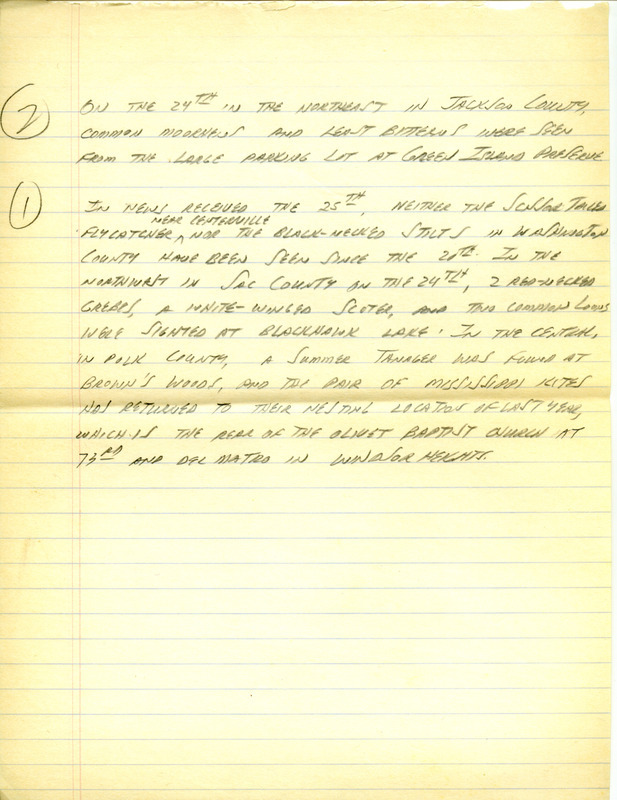 ② ON THE 24TH IN THE NORTHEAST IN JACKSON COUNTY,
COMMON MOORHENS AND LEAST BITTERNS WERE SEEN
FROM THE LARGE PARKING LOT AT GREEN ISLAND PRESERVE
① IN NEWS RECEIVED THE 25TH, NEITHER THE SCISSOR TAILED
NEAR CENTERVILLE
FLYCATCHER ^ NOR THE BLACK-NECKED STILTS IN WASHINGTON
COUNTY HAVE BEEN SEEN SINCE THE 20TH. IN THE
NORTHWEST IN SAC COUNTY ON THE 24TH, 2 RED-NECKED
GREBES, A WHITE-WINGED SCOTER, AND TWO COMMON LOONS
WERE SIGHTED AT BLACKHAWK LAKE. IN THE CENTRAL,
IN POLK COUNTY, A SUMMER TANAGER WAS FOUND AT
BROWN'S WOODS, AND THE PAIR OF MISSISSIPPI KITES
HAS RETURNED TO THEIR NESTING LOCATION OF LAST YEAR,
WHICH IS THE REAR OF THE OLIVET BAPTIST CHURCH AT
73RD AND DEL MATRO IN WINDSOR HEIGHTS.